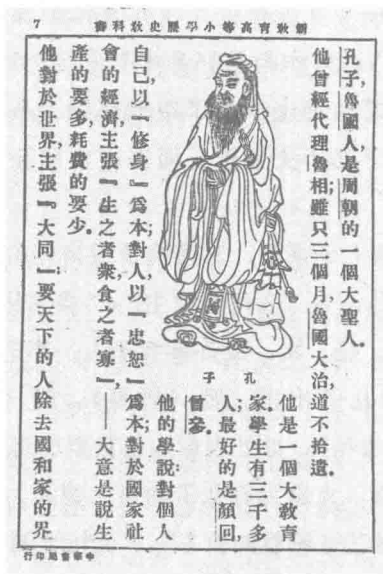 新教育高等小學歷史教科書
7
孔子,魯國人,是周朝的一個大聖人。
他曾經代理魯相;雖只三個月,魯國大治,道不拾遺。
孔子
他是一個大教育
家,學生有三千多
人;最好的是顏回,
曾參。
他的學說:對個人
自己,以『修身』爲本;對人,以『忠恕』爲本;對於國家社
會的經濟,主張『生之者衆,食之者寡』,——大意是說生
產的要多,耗費的要少。
他對於世界,主張『大同』,要天下的人除去國和家的界
中華書局印行